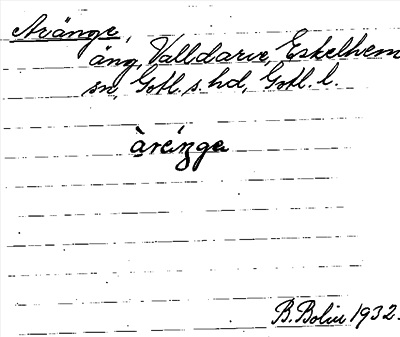 Avänge,
äng, Valldarve, Eskelhem
sn, Gotl. s. hd, Gotl. l.
B. Bolin 1932.